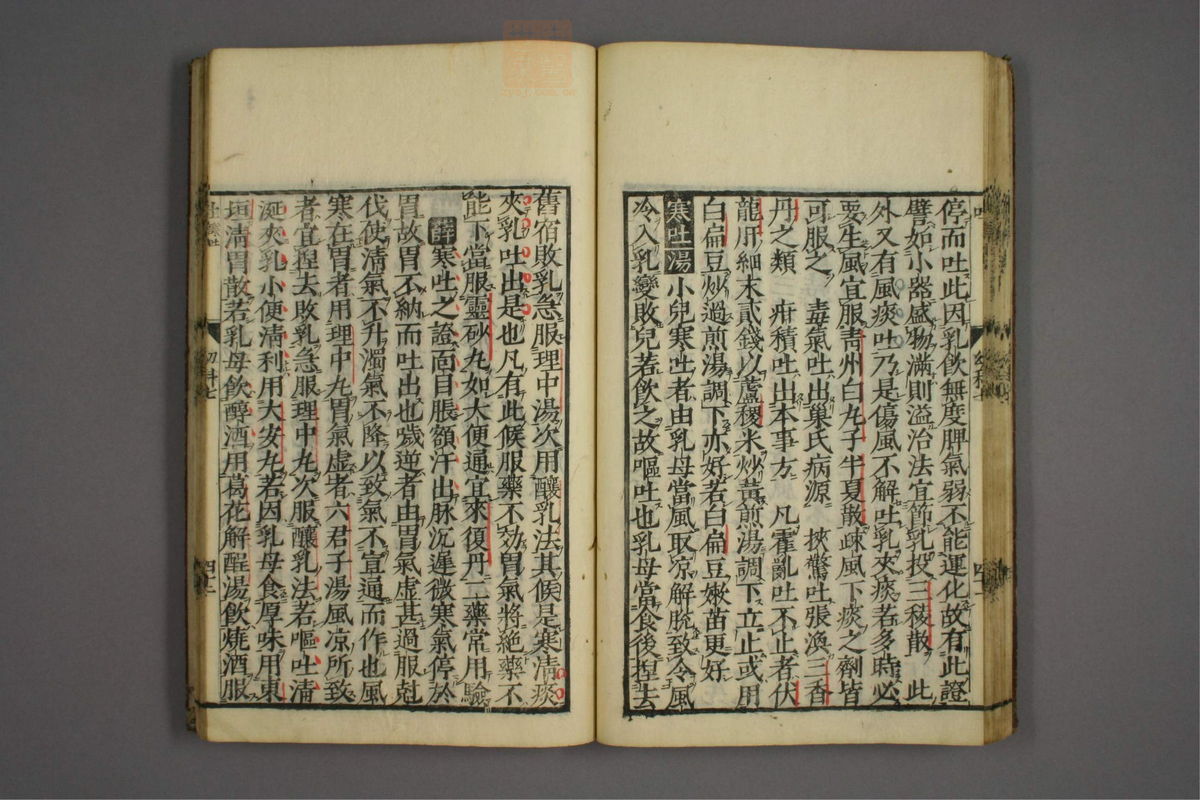 停而吐此因乳飲無度脾氣弱不能運化故有此證
譬如小器盛物滿則溢治法宜節乳投三稜散 此
外又有風痰吐乃是傷風不解吐乳夾痰若多時必
要生風宜服青州白丸子半夏散疎風下痰之劑皆
可服之 毒氣吐出巢氏病源 挾驚吐張渙三香
丹之類 疳積吐出本事方 凡霍亂吐不止者伏
龍肝細末貳錢以蘆稷米炒黃煎湯調下立止或用
白扁豆炒過煎湯調下亦好若白扁豆嫩苗更好
寒吐湯 小兒寒吐者由乳母當風取凉解脫致令風
冷入乳變敗兒若飲之故嘔吐也乳母當食後捏去
舊宿敗乳急服理中湯次用釀乳法其候是寒清痰
夾乳吐出是也凡有此候服藥不効胃氣將絕藥不
能下當服靈砂丸如大便通宜來復丹二藥常用驗
薛寒吐之證面目脹額汗出脉沉遲微寒氣停於
胃故胃不納而吐出也噦逆者由胃氣虛甚過服尅
伐使清氣不升濁氣不降以致氣不宣通而作也風
寒在胃者用理中丸胃氣虛者六君子湯風凉所致
者宜捏去敗乳急服理中丸次服釀乳法若嘔吐清
涎夾乳小便清利用大安丸若因乳母食厚味用東
垣清胃散若乳母飲醇酒用葛花解酲湯飲燒酒服